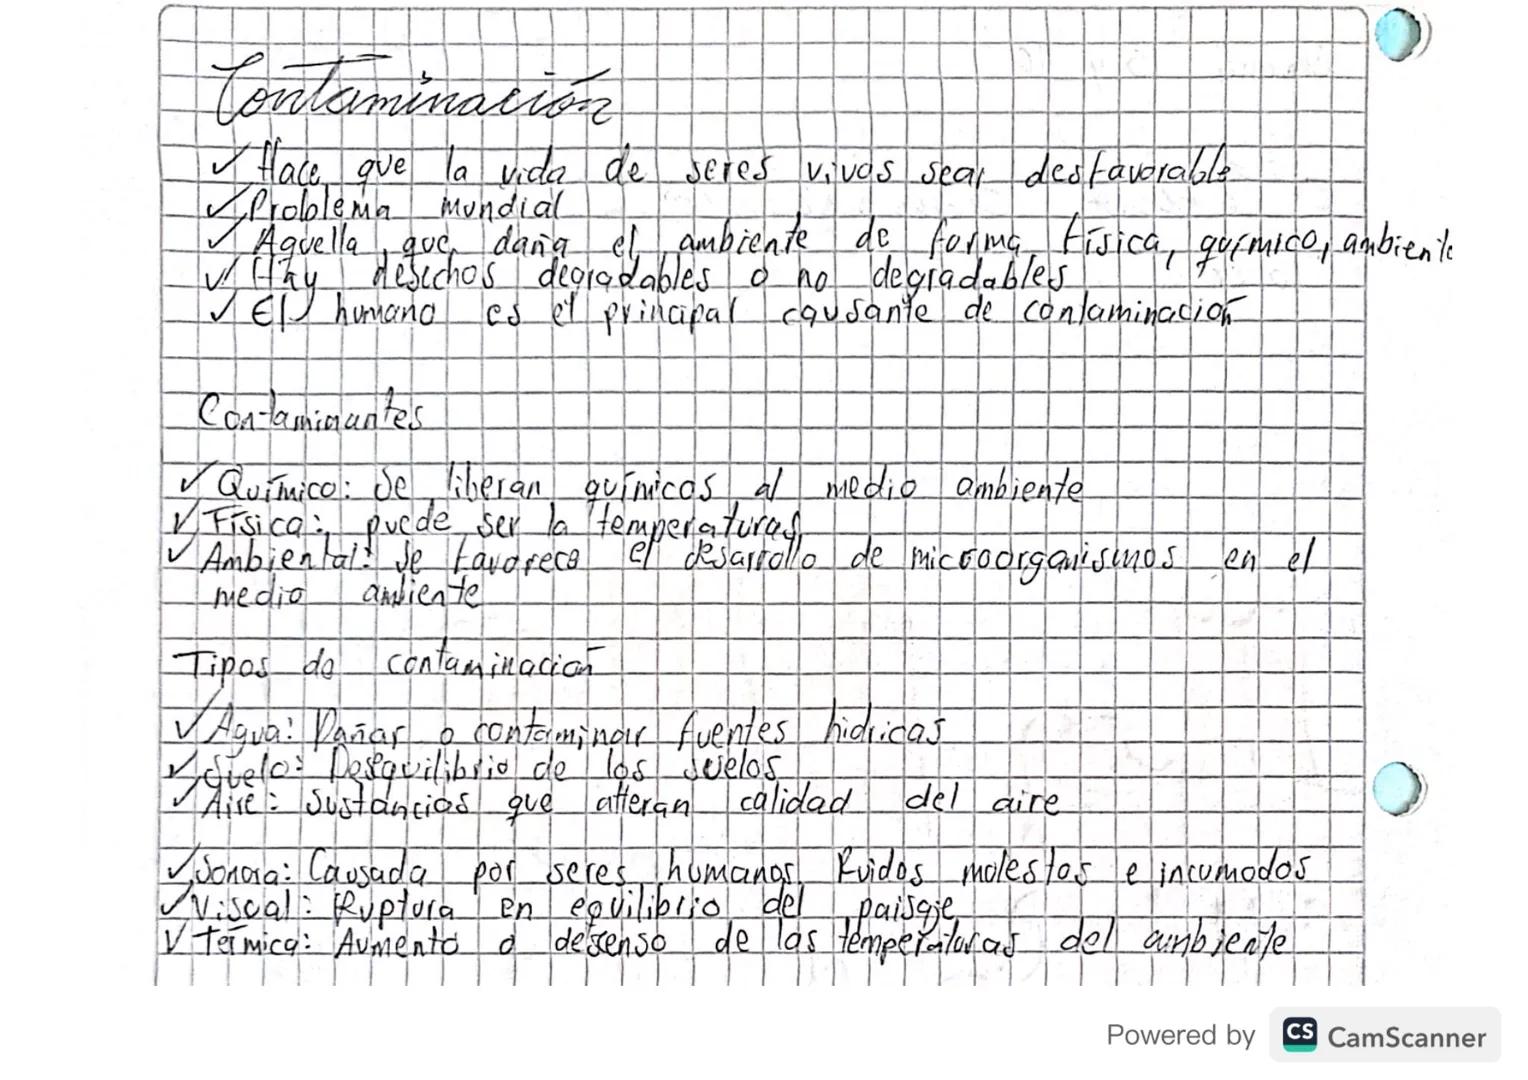 Contaminación
✓ Hace que la vida de seres vivos sear desfavorable
✓ Problema mundial
✓ Aquella que daña el ambiente de forma física, químico, ambiente
✓ Hay desechos degradables o no degradables
✓ El humano es el principal causante de contaminación
Contaminantes
✓ Químico: Se liberan químicos al medio ambiente
✓ Física: puede ser la temperaturas
✓ Ambiental: Se favorece el desarrollo de microorganismos en el
medio ambiente
Tipos de contaminación
✓ Agua: Dañar o contaminar fuentes hidricas
✓ Suelo: Desequilibrio de los suelos
✓ Aire: Sustancias que alteran calidad del aire
✓ Sonora: Causada por seres humanos. Ruidos molestos e incumodos
✓ Viscal: Ruptura en equilibrio del paisaje
✓ Térmica: Aumento o desenso de las temperaturas del ambiente
Powered by CS CamScanner